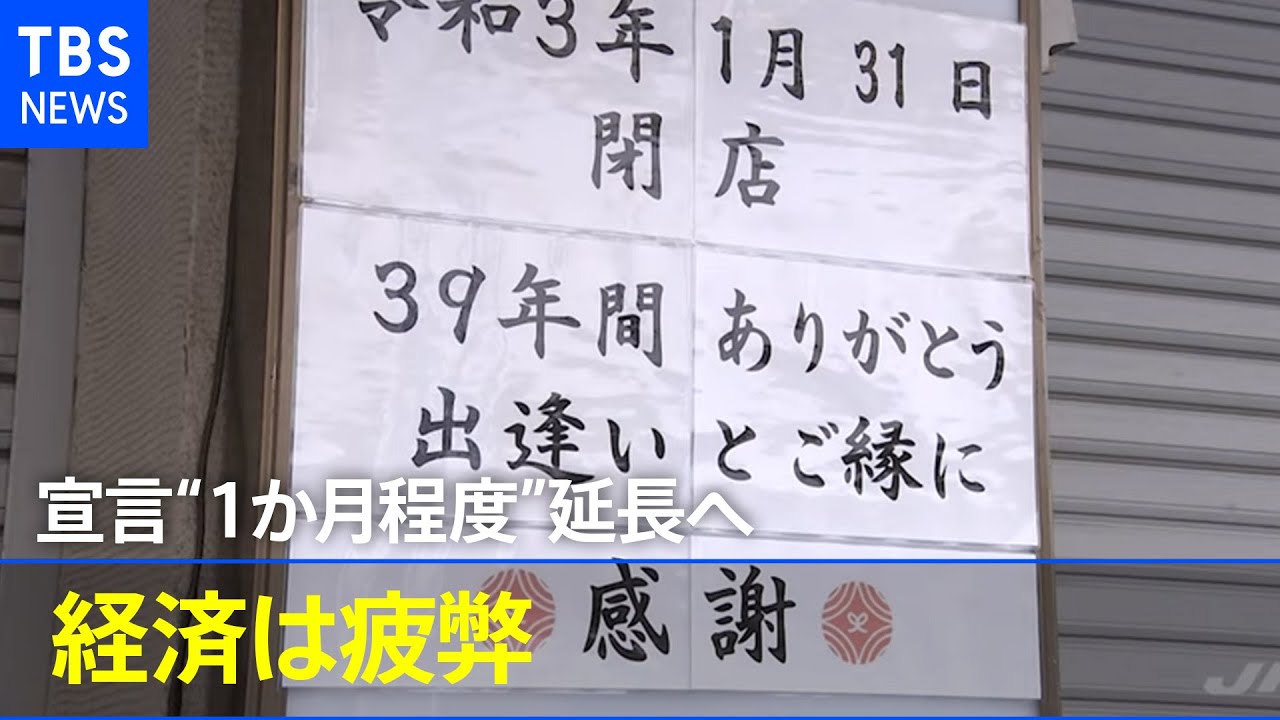 TBS
NEWS
令和3年 1月 31 日
閉 店
39年間 ありがとう
出逢いとご縁に
宣言“1か月程度”延長へ
感 謝
経済は疲弊